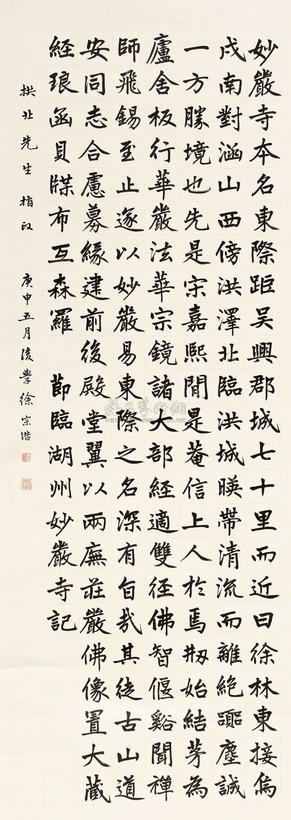 妙嚴寺本名東際距吳興郡城七十里而近曰徐林東接烏
戍南對涵山西傍洪澤北臨洪城暎帶清流而離絕囂塵誠
一方勝境也先是宋嘉熙間是菴信上人於焉刱始結茅為
廬舍板行華嚴法華宗鏡諸大部經適雙徑佛智偃谿聞禪
師飛錫至止遂以妙嚴易東際之名深有旨哉其徒古山道
安同志合慮募緣建前後殿堂翼以兩廡莊嚴佛像置大藏
經琅函貝牒布互森羅 節臨湖州妙嚴寺記
拱北先生指政 庚申五月後學徐宗浩